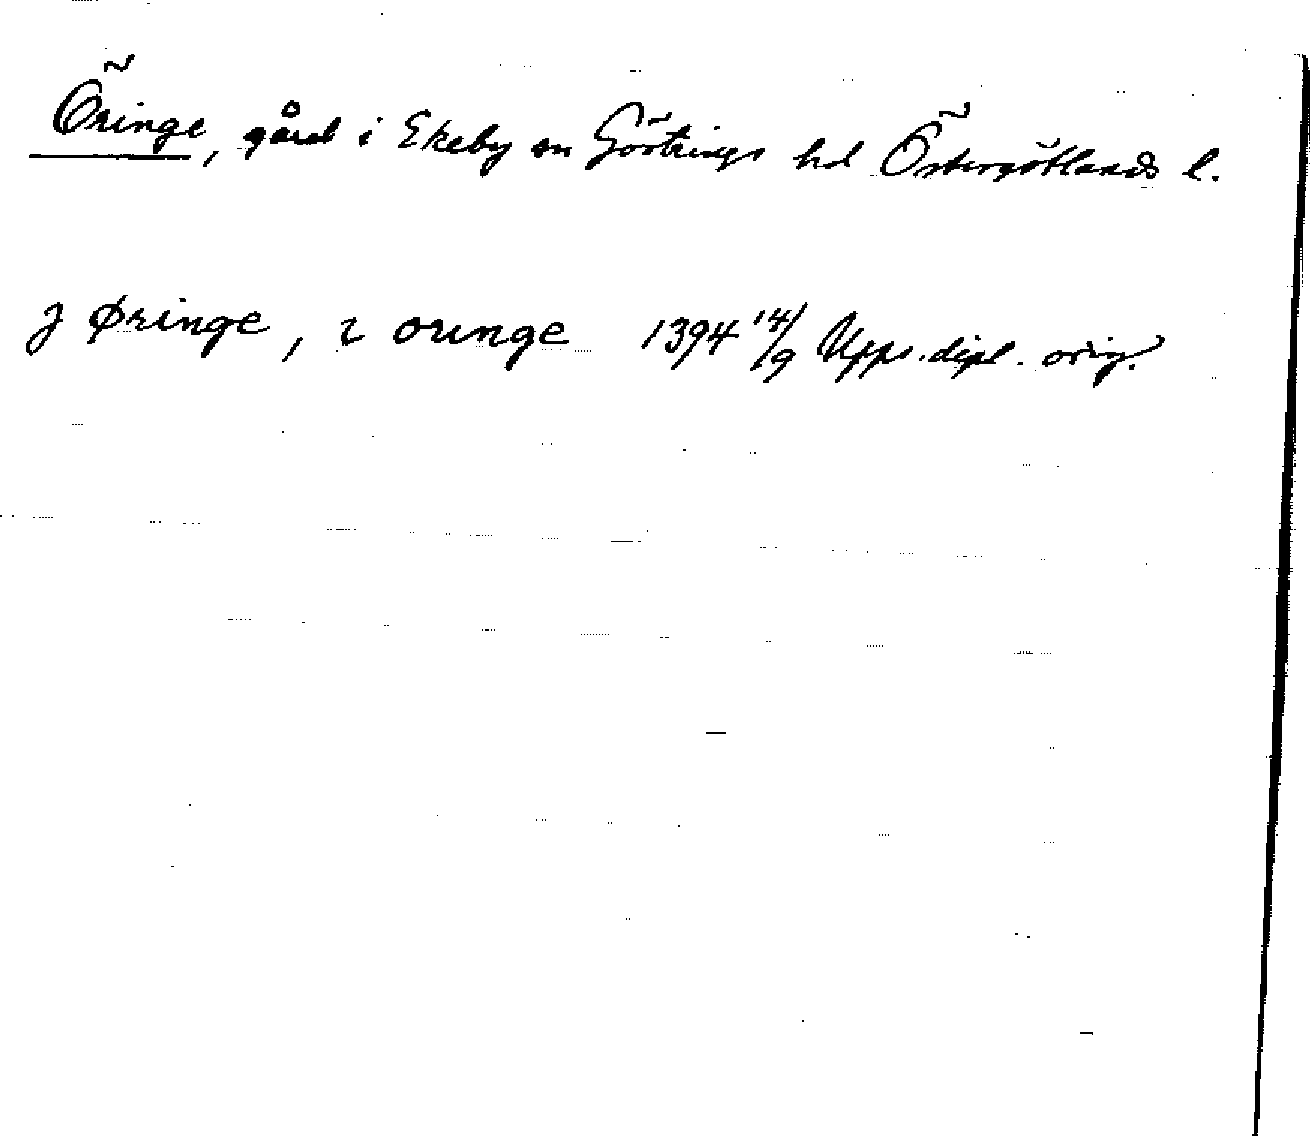 Öringe, gård i Ekeby sn Göstrings hd Östergötlands l.
j Øringe, i oringe 1394 14/9 Upps. dipl. orig.